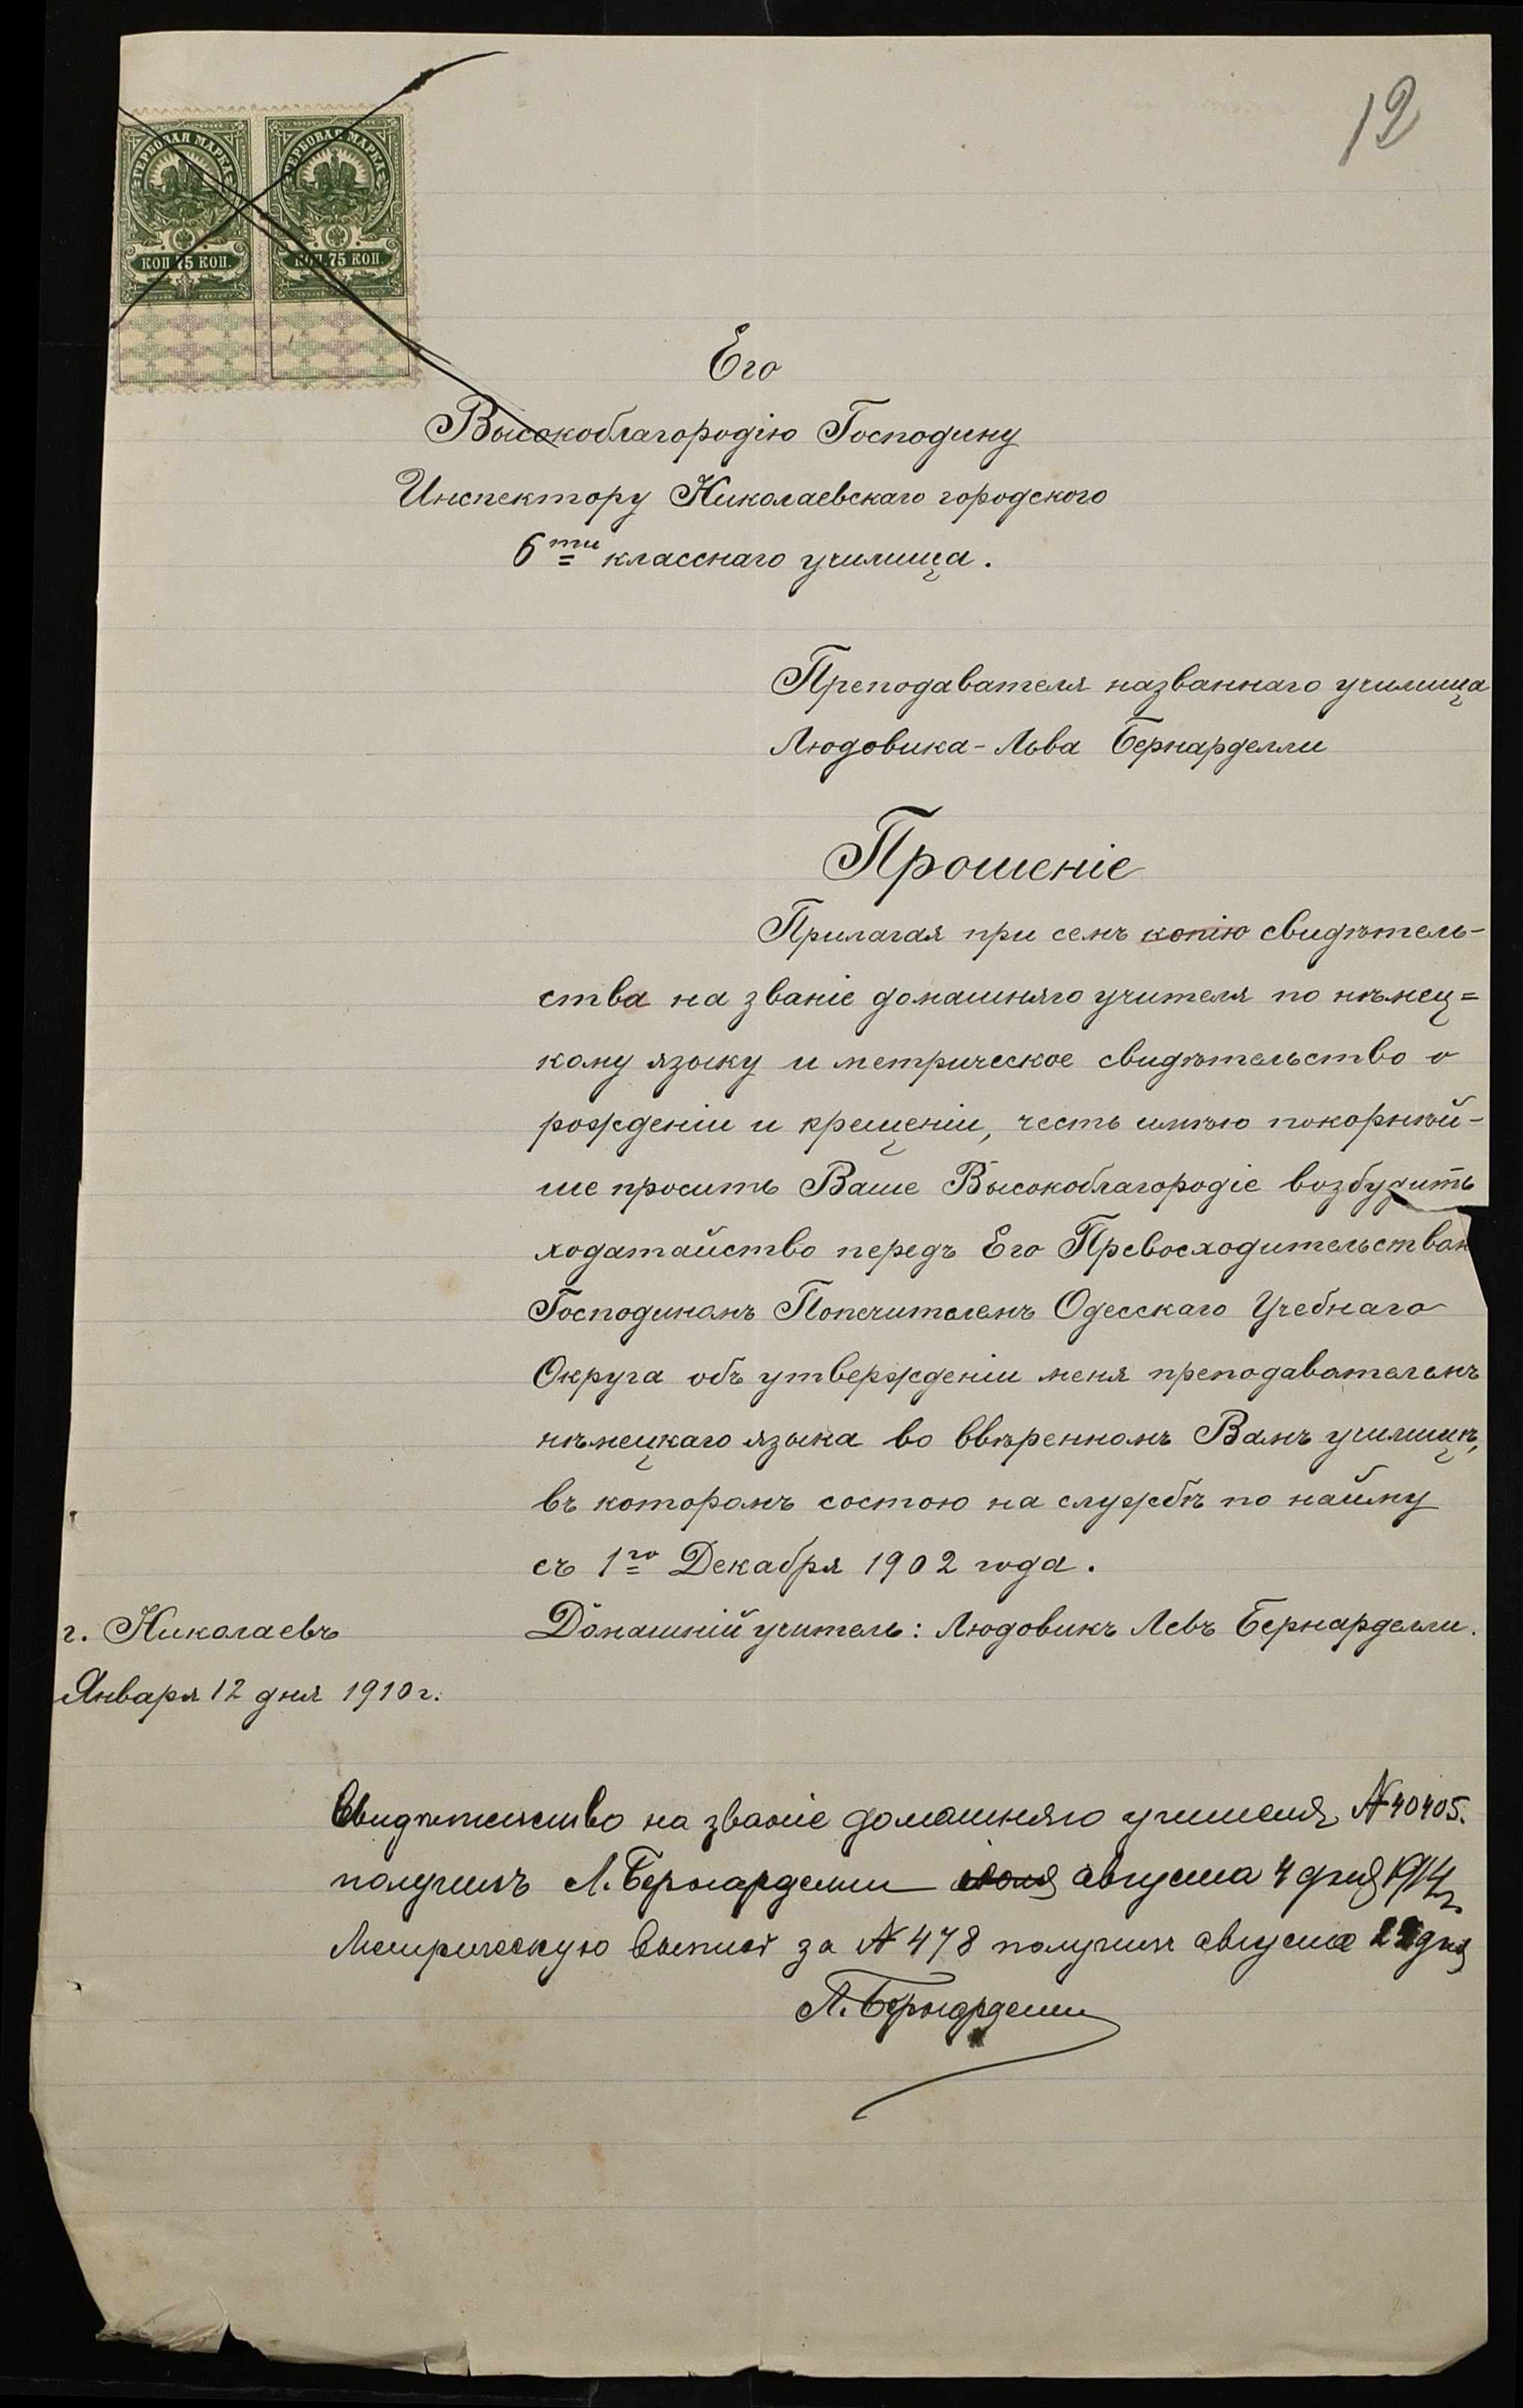 12
ГЕРБОВАЯ МАРКА ГЕРБОВАЯ МАРКА
КОП 75 КОП. КОП. 75 КОП.
Его
Высокоблагородію Господину
Инспектору Николаевскаго городского
6ти класснаго училища.
Преподавателя названнаго училища
Людовика-Льва Бернарделли
Прошеніе
Прилагая при семъ копію свидѣтель-
ства на званіе домашняго учителя по нѣмец=
кому языку и метрическое свидѣтельство о
рожденіи и крещеніи, честь имѣю покорнѣй-
ше просить Ваше Высокоблагородіе возбудить
ходатайство передъ Его Превосходительством
Господиномъ Попечителемъ Одесскаго Учебнаго
Округа объ утвержденіи меня преподавателемъ
нѣмецкаго языка во ввѣренномъ Вамъ училищѣ,
въ которомъ состою на службѣ по найму
съ 1го Декабря 1902 года.
г. Николаевъ Домашній учитель: Людовикъ Левъ Бернарделли.
Января 12 дня 1910 г.
Свидѣтельство на званіе домашняго учителя, № 40405.
получилъ Л. Бернарделли августа 4 дня 1914 г.
Метрическую выпись за № 478 получилъ августа дня
Л. Бернарделли